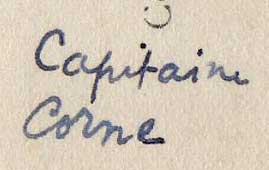 Capitaine
Corne